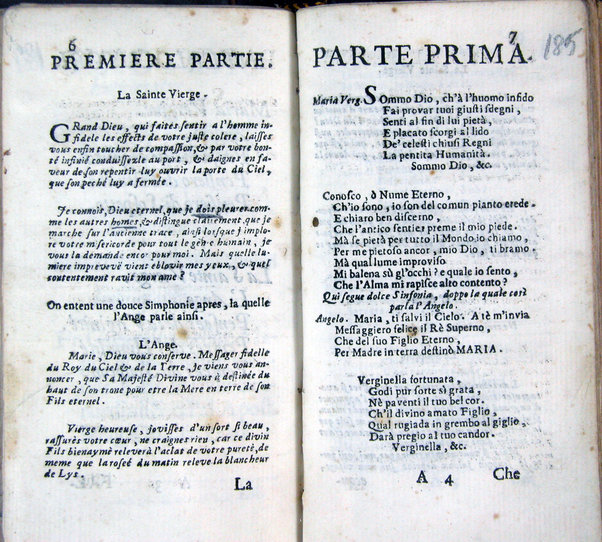 6
PREMIERE PARTIE.
La Sainte Vierge.
GRand Dieu, qui faites sentir a l'homme in-
fidelle les effects de votre juste colere, laisses
vous enfin toucher de compassion, & par votre bon-
té infinie conduissezle au port, & daignes en fa-
veur de son repentir luy ouvrir la porte du Ciel,
que son peché luy a fermée.
Je connois, Dieu eternel, que je dois pleurer com-
me les autres homes, & distingue clairement que je
marche sur l'ancienne trace, ainsi lorsque j implo-
re vôtre misericorde pour tout le genre humain, je
vous la demande encor pour moi. Mais quelle lu-
miere impreveve vient eblovir mes yeux, & quel
contentement ravit mon ame?
On entent une douce Simphonie apres, la quelle
l'Ange parle ainsi.
L'Ange.
Marie, Dieu vous conserve. Messager fidelle
du Roy du Ciel & de la Terre, je viens vous an-
noncer, que Sa Majesté Divine vous à destinée du
haut de son trone pour etre la Mere en terre de son
Fils eternel.
Vierge heureuse, jovisses d'un sort si beau,
rassurès votre cœur, ne craignes rien, car ce divin
Fils bienaymé relevera l'aclat de votre pureté, de
meme que la roseé du matin releve la blancheur
de Lys.
La
7
185
PARTE PRIMA.
Maria Verg. SOmmo Dio, ch'à l'huomo infido
Fai provar tuoi giusti sdegni,
Senti al fin di lui pietà,
E placato scorgi al lido
De' celesti chiusi Regni
La pentita Humanità.
Sommo Dio, &c.
Conosco, ò Nume Eterno,
Ch'io sono, io son del comun pianto erede.
E chiaro ben discerno,
Che l'antico sentier preme il mio piede.
Mà se pietà per tutto il Mondo io chiamo,
Per me pietoso ancor, mio Dio, ti bramo.
Mà qual lume improviso
Mi balena sù gl'occhi? e quale io sento,
Che l'Alma mi rapisce alto contento?
Qui segue dolce Sinfonia, doppo la quale così
parla l'Angelo.
Angelo. Maria, ti salvi il Cielo. A tè m'invia
Messaggiero felice il Rè Superno,
Che del suo Figlio Eterno,
Per Madre in terra destinò MARIA.
Verginella fortunata,
Godi pur sorte sì grata,
Nè paventi il tuo bel cor.
Ch'il divino amato Figlio,
Qual rugiada in grembo al giglio,
Darà pregio al tuo candor.
Verginella, &c.
A 4 Che